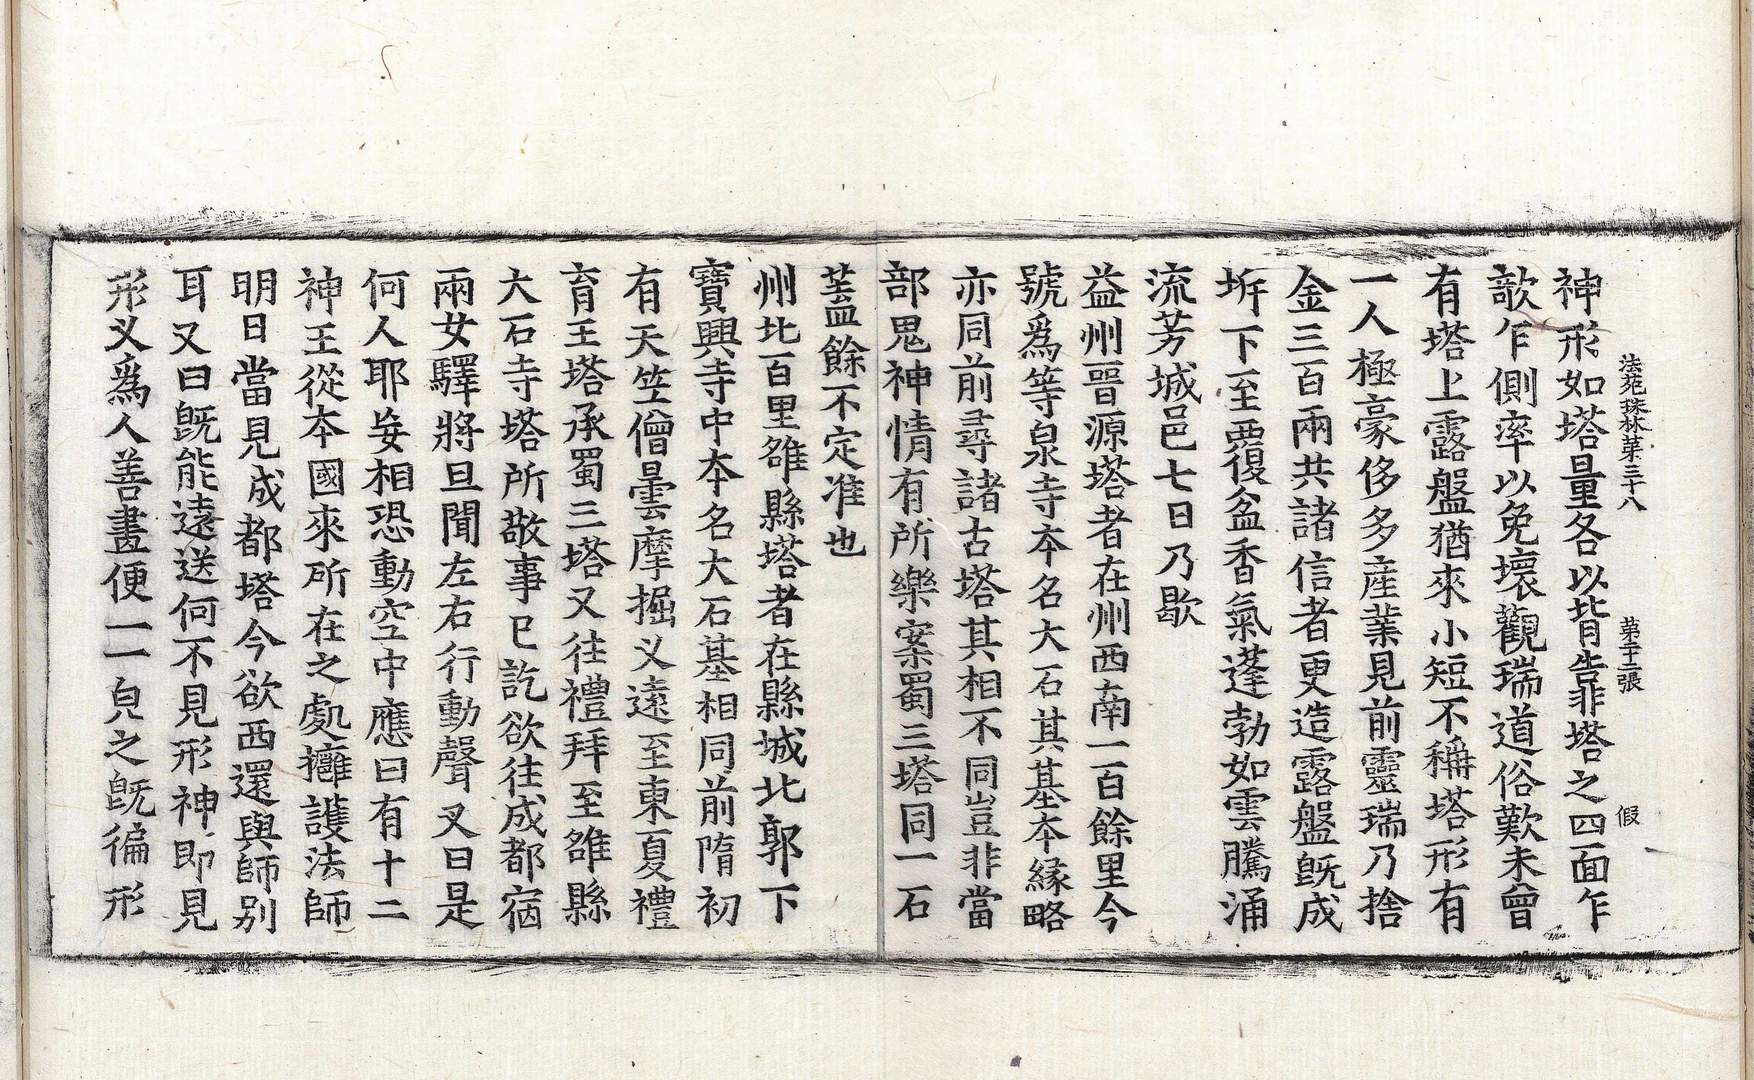 法苑珠林苐三十八　苐十二張　假
神形如塔量各以背告非塔之四面乍
欹乍側率以免壞觀瑞道俗歎未曾
有塔上露盤猶來小短不稱塔形有
一人極豪侈多産業見前靈瑞乃捨
金三百兩共諸信者更造露盤旣成
㘿下至覆盆香氣蓬勃如雲騰涌
流芳城邑七日乃歇
益州晉源塔者在州西南一百餘里今
號爲等泉寺本名大石其基本緣略
亦同前尋諸古塔其相不同豈非當
部鬼神情有所樂案蜀三塔同一石
蓋餘不定准也
州北百里雒縣塔者在縣城北郭下
寶興寺中本名大石基相同前隋初
有天竺僧曇摩掘义遠至東夏禮
育王塔承蜀三塔又往禮拜至雒縣
大石寺塔所敬事已訖欲往成都宿
兩女驛將旦聞左右行動聲叉曰是
何人耶妄相恐動空中應曰有十二
神王從本國來所在之處擁護法師
明日當見成都塔今欲西還與師別
耳又曰旣能遠送何不見形神即見
形义爲人善畫便一一皃之旣徧形